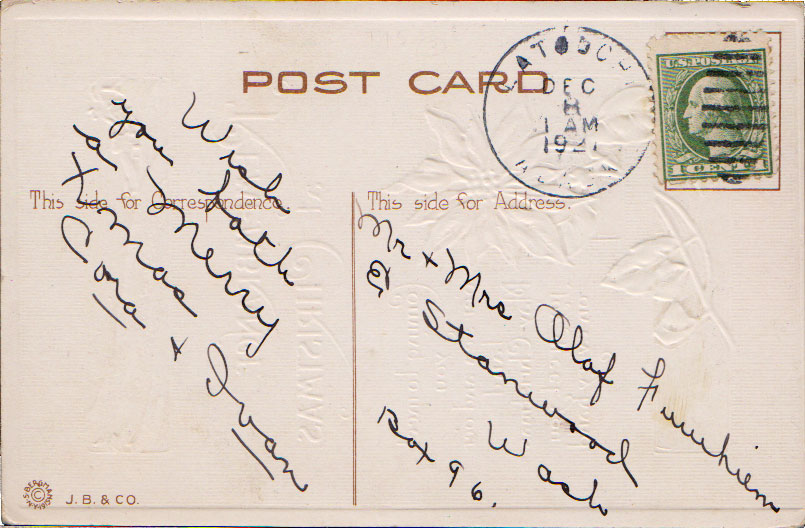 POST CARD
DEC
8
1 AM
U.S. POSTAGE
1 CENT 1
This side for Correspondence.
This side for Address.
Wish
you both
a Merry
Xmas
Cora + Ivan
Mr + Mrs Olaf
E Stanwood
Wash
Box 96.
J. B. & CO.